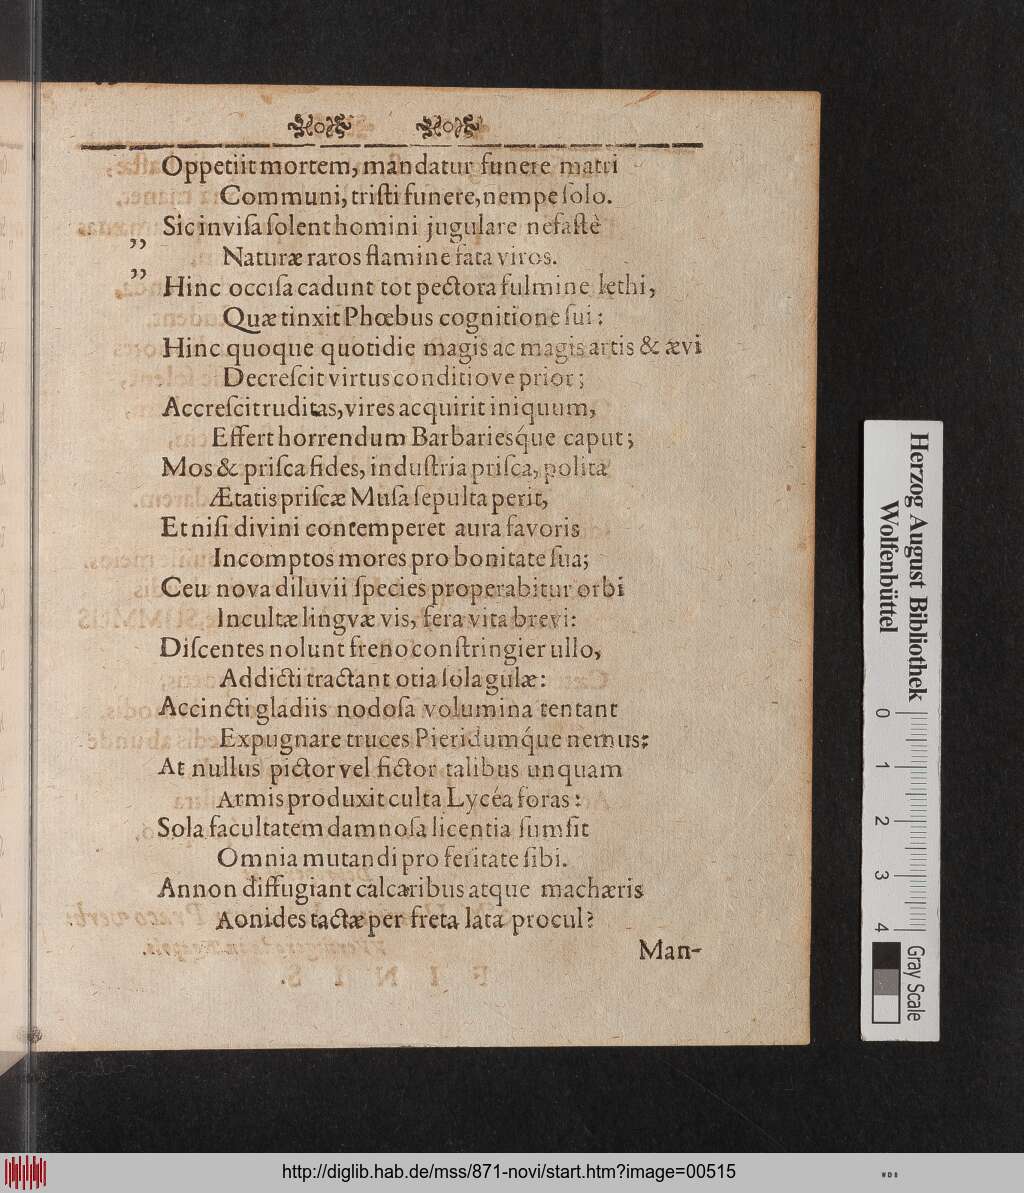 Oppetiit mortem, mandatur funere matri
Communi, triſti funere, nempe ſolo.
Sic inviſa ſolent homini jugulare nefaſtè
„ Naturæ raros flamine fata viros.
„ Hinc occiſa cadunt tot pectora fulmine lethi,
Quæ tinxit Phœbus cognitione ſui:
Hinc quoque quotidie magis ac magis artis & ævi
Decreſcit virtus conditiove prior;
Accreſcit ruditas, vires acquirit iniquum,
Effert horrendum Barbariesq́ue caput;
Mos & priſca fides, induſtria priſca, polita
Ætatis priſcæ Muſa ſepulta perit,
Et niſi divini contemperet aura favoris
Incomptos mores pro bonitate ſua;
Ceu nova diluvii ſpecies properabitur orbi
Incultæ lingvæ vis, fera vita brevi:
Diſcentes nolunt freno conſtringier ullo,
Addicti tractant otia ſola gulæ:
Accincti gladiis nodoſa volumina tentant
Expugnare truces Pieridumq́ue nemus:
At nullus pictor vel fictor talibus unquam
Armis produxit culta Lycéa foras:
Sola facultatem damnoſa licentia ſumſit
Omnia mutandi pro feritate ſibi.
Annon diffugiant calcaribus atque machæris
Aonides tactæ per freta lata procul?
Man-
Herzog August Bibliothek
Wolfenbüttel
0 1 2 3 4
Gray Scale
http://diglib.hab.de/mss/871-novi/start.htm?image=00515